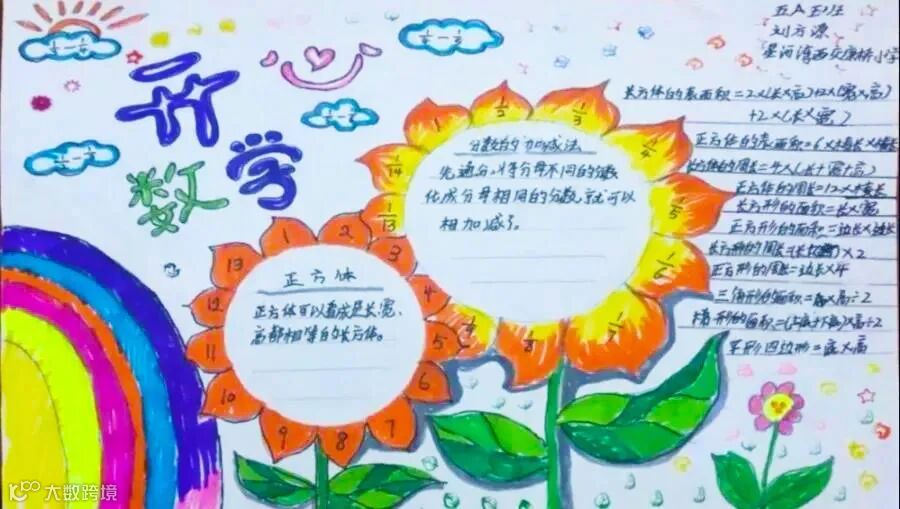 开心
数学
五A五班
刘方源
星河湾西交康桥小学
长方体的表面积=2×(长×高)+2×(宽×高)
+2×(长×宽)
正方体的表面积=6×棱长×棱长
长方体的周长=4×(长+宽+高)
正方体的周长=12×棱长
长方形的面积=长×宽
正方形的面积=边长×边长
长方形的周长=(长+宽)×2
正方形的周长=边长×4
三角形的面积=底×高÷2
梯形的面积=(上底+下底)×高÷2
平形四边形=底×高
分数的加减法
先通分,将分母不同的分数
化成分母相同的分数,就可以
相加减了。
1
1/2
1/3
1/4
1/5
1/6
1/7
1/8
1/13
1/14
正方体
正方体可以看成是长、宽、
高都相等的长方体。
1
2
3
4
5
6
7
8
9
10
11
12
13
大数跨境